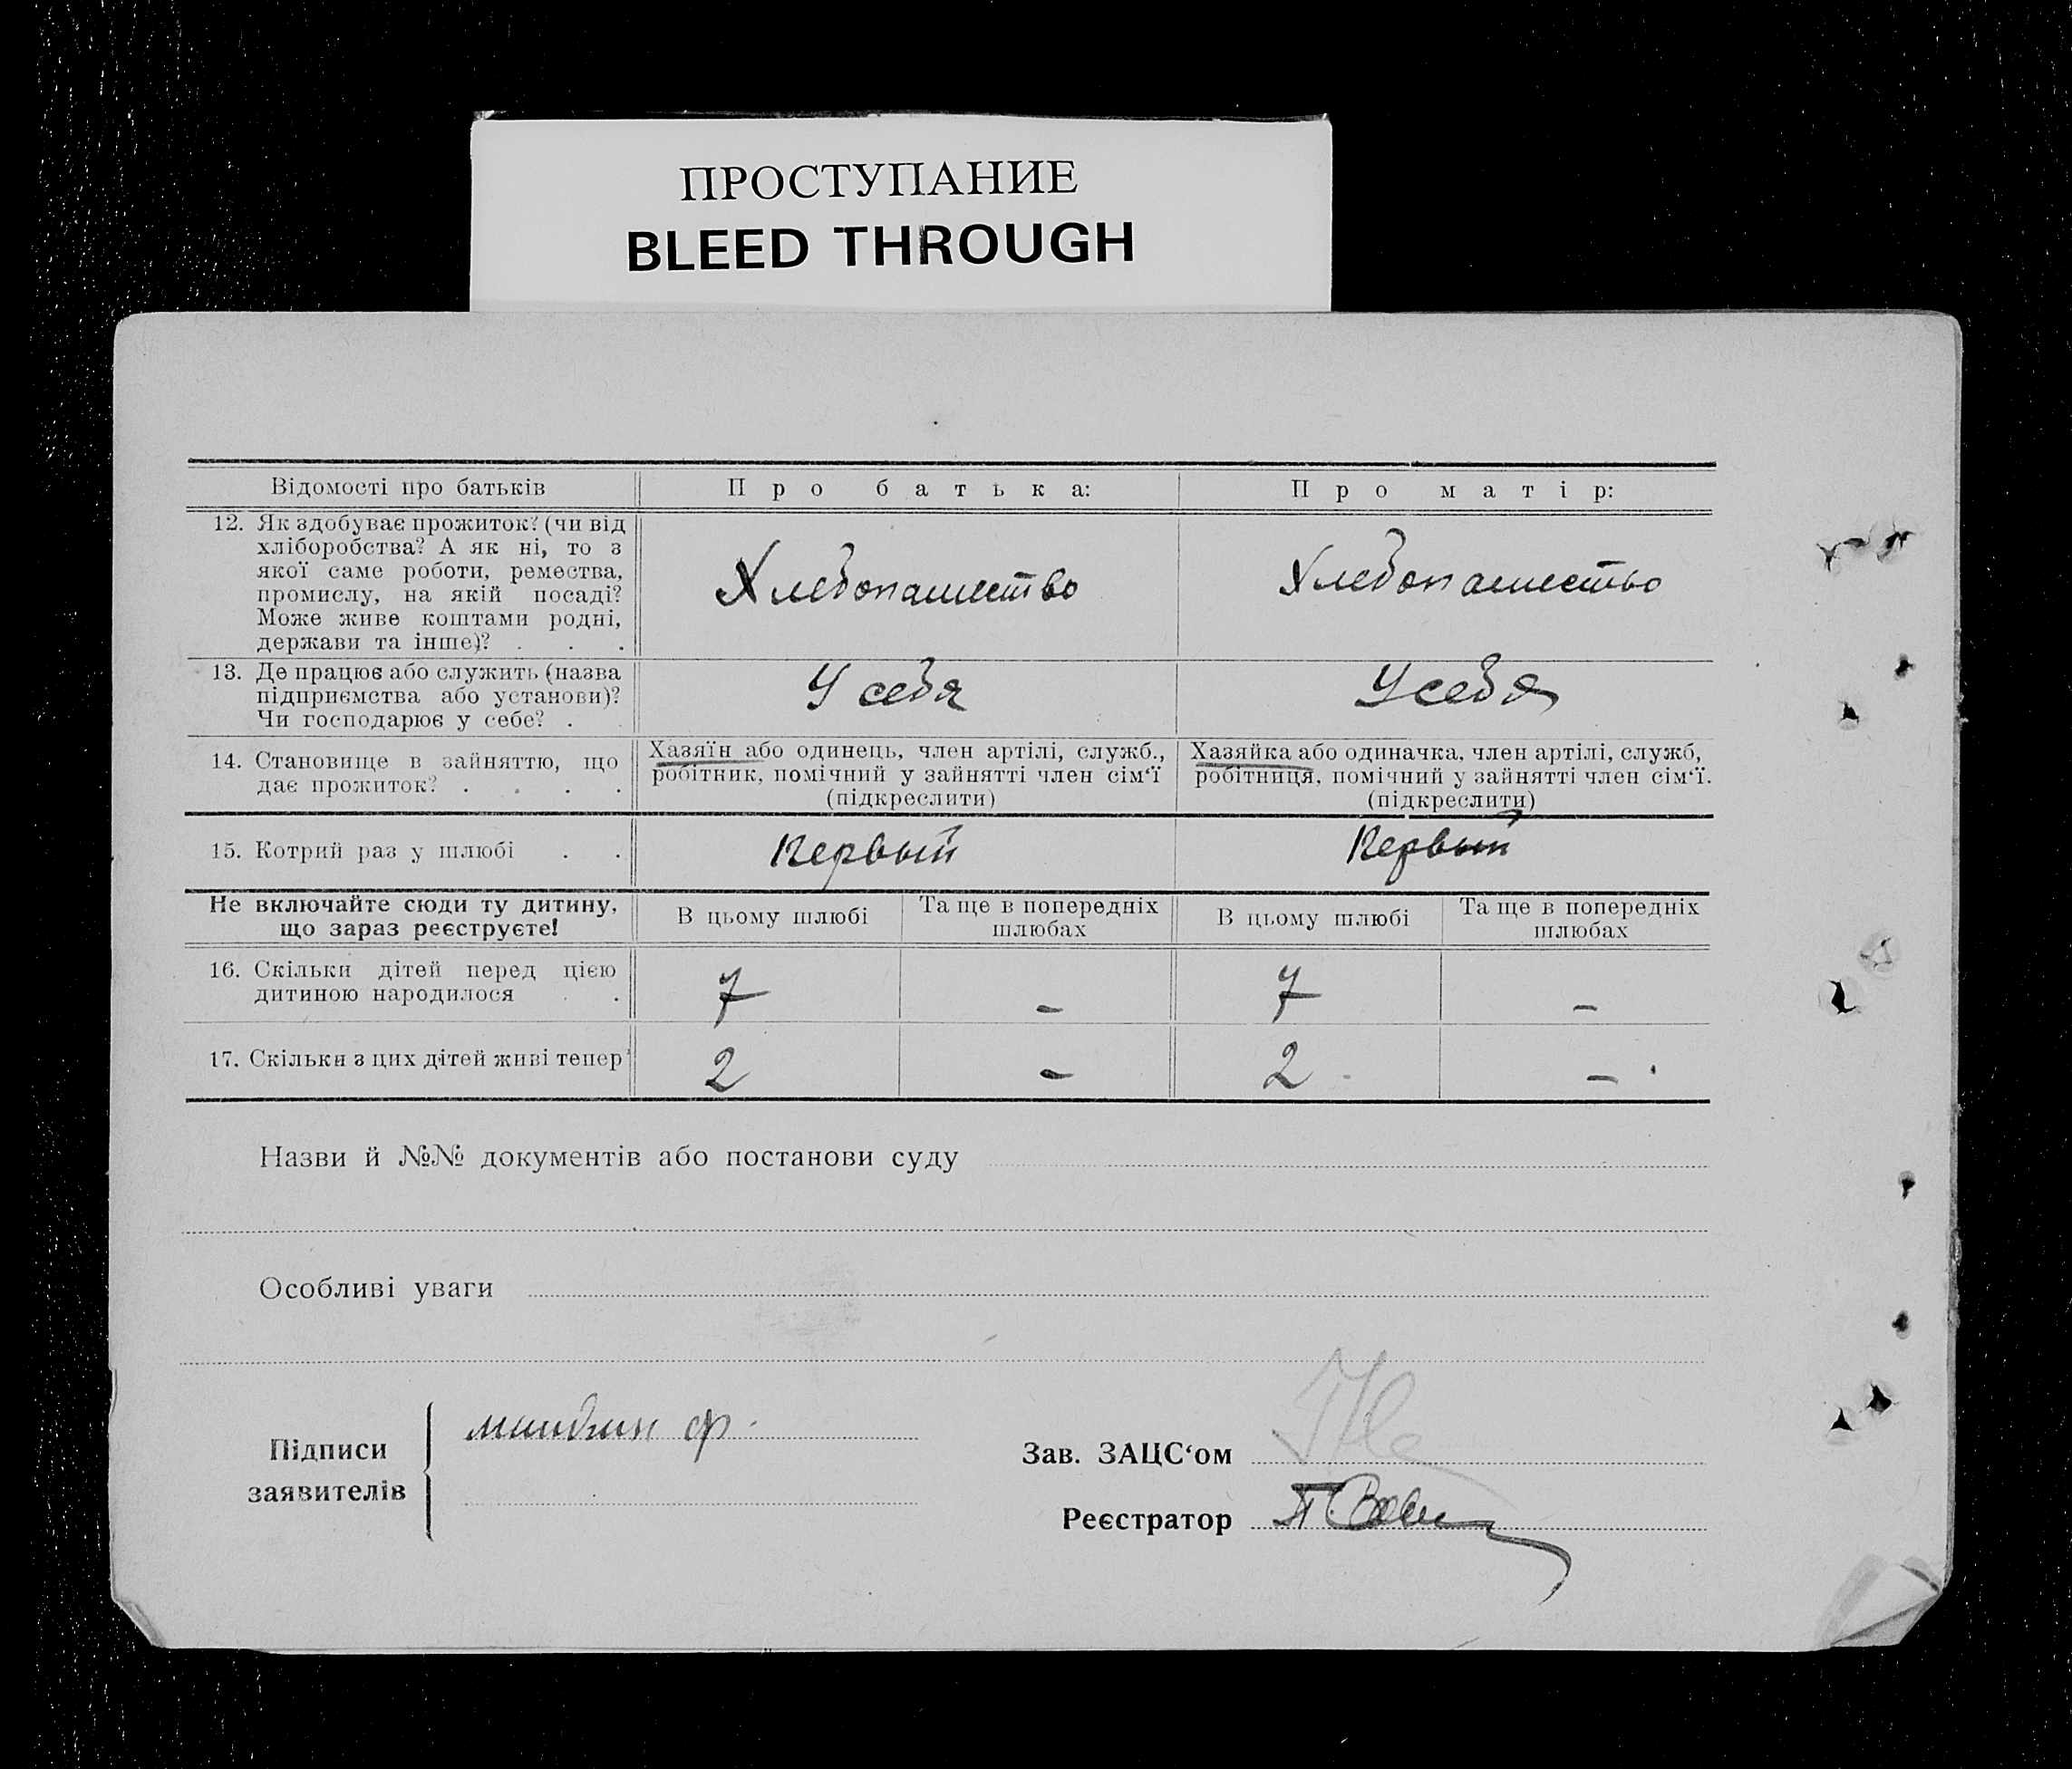 ПРОСТУПАНИЕ
BLEED THROUGH
Відомості про батьків
Про батька:
Про матір:
12. Як здобуває прожиток? (чи від
хліборобства? А як ні, то з
якої саме роботи, ремества,
промислу, на якій посаді?
Може живе коштами родні,
держави та інше)? . . .
Хлебопашество
Хлебопашество
13. Де працює або служить (назва
підприємства або установи)?
Чи господарює у себе? .
У себя
У себя
14. Становище в зайняттю, що
дає прожиток? . . . .
Хазяїн або одинець, член артілі, служб.,
робітник, помічний у зайнятті член сім‘ї
(підкреслити)
Хазяйка або одиначка, член артілі, служб,
робітниця, помічний у зайнятті член сім‘ї.
(підкреслити)
15. Котрий раз у шлюбі . .
Первый
Первый
Не включайте сюди ту дитину,
що зараз реєструєте!
В цьому шлюбі
Та ще в попередніх
шлюбах
В цьому шлюбі
Та ще в попередніх
шлюбах
16. Скільки дітей перед цією
дитиною народилося . .
7
–
7
–
17. Скільки з цих дітей живі тепер
2
–
2
–
Назви й №№ документів або постанови суду
Особливі уваги
Підписи
заявителів
ф.
Зав. ЗАЦС‘ом
Реєстратор